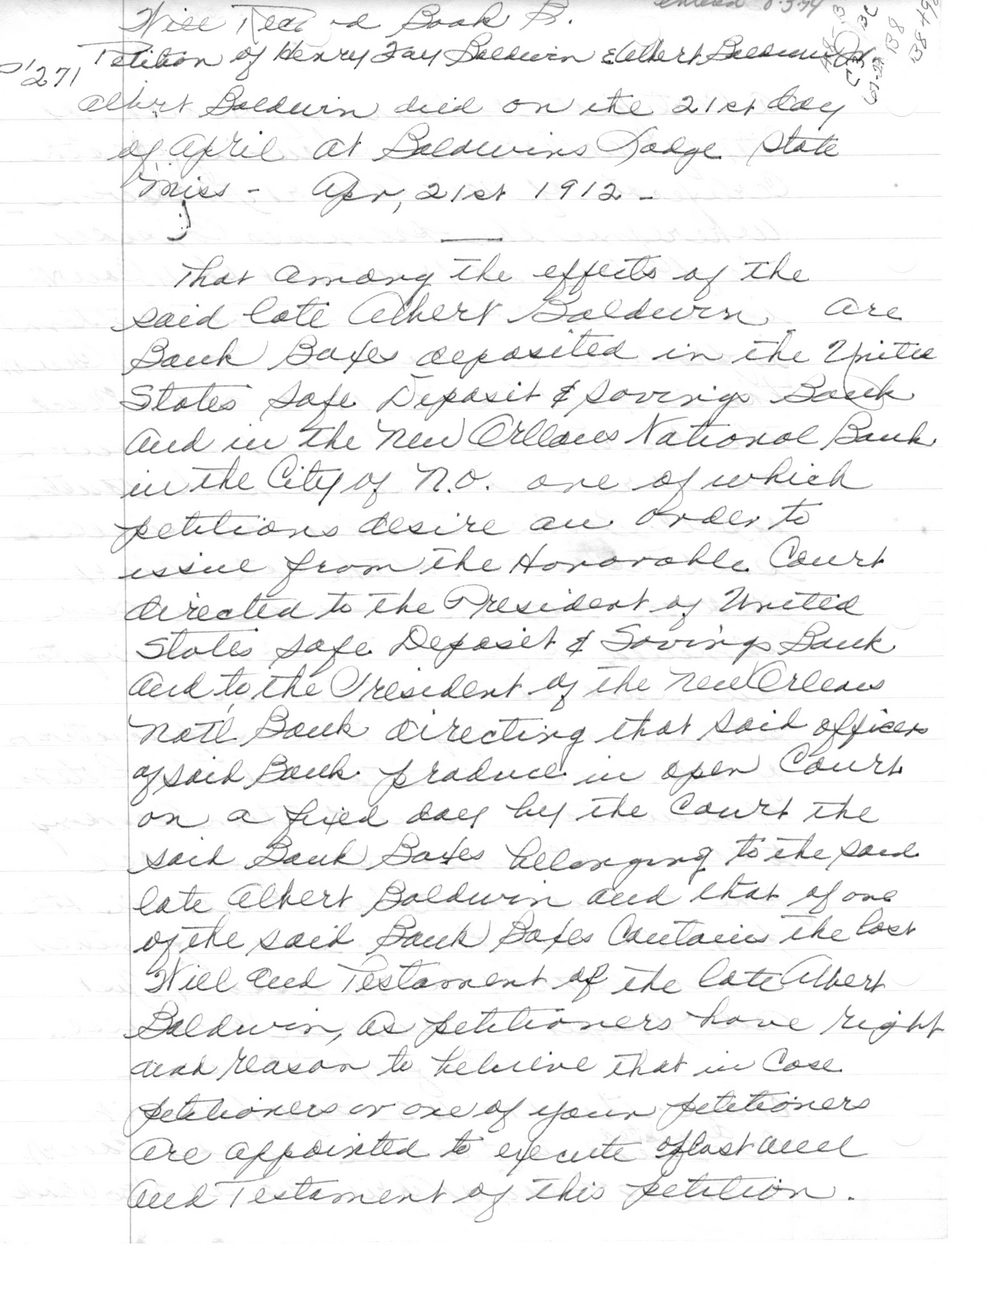 Will Record Book B.
Petition of Henry Fay Baldwin & Albert Baldwin Jr.
P'271
Albert Baldwin died on the 21st day
of April at Baldwins Lodge State
Miss - Apr, 21st 1912 -
That among the effects of the
said late Albert Baldwin, are
Bank Boxes deposited in the United
States Safe Deposit & Savings Bank
and in the New Orleans National Bank
in the City of N.O. one of which
petitions desire an order to
issue from the Honorable Court
directed to the President of United
States Safe Deposit & Savings Bank
and to the President of the New Orleans
Natl Bank directing that said officers
of said Bank produce in open Court
on a fixed day by the Court the
said Bank Boxes belonging to the said
late Albert Baldwin and that of one
of the said Bank Boxes Contains the last
Will and Testament of the late Albert
Baldwin, as petitioners have right
and reason to believe that in case
petitioners or one of your petitioners
are appointed to execute of last will
and Testament of this petition.